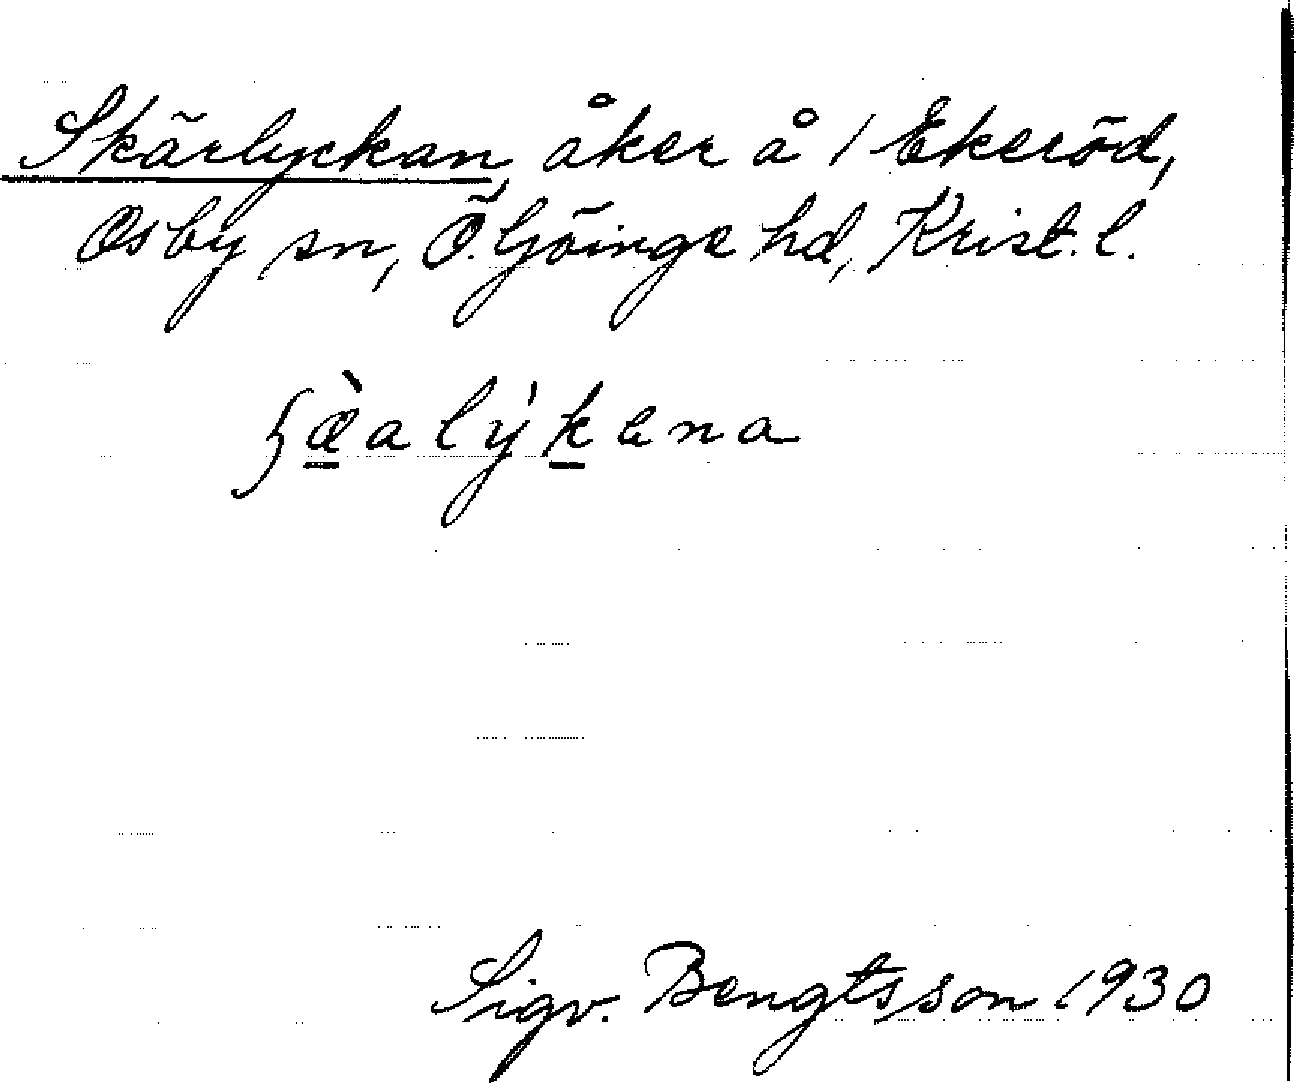 Skärlyckan, åker å 1 Ekeröd,
Osby sn, Ö. Göinge hd, Krist. l.
ʃæ̀alýkena
Sigv. Bengtsson 1930